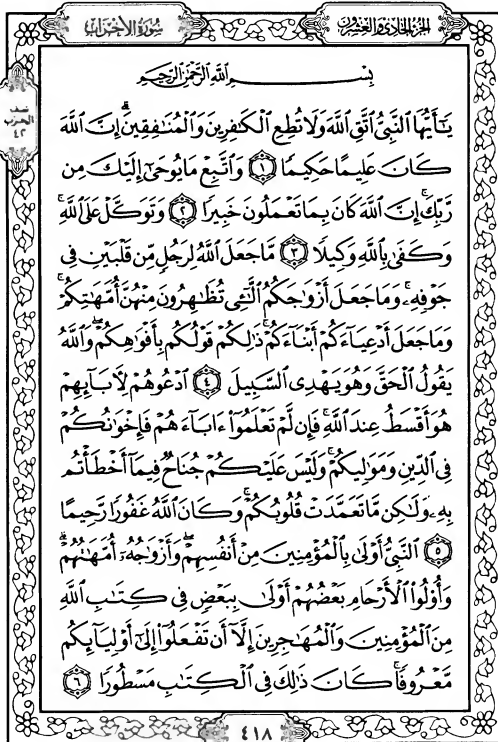 سُورَةُ الأَحْزَابِ
الجُزْءُ الحَادِي وَالعِشْرُونَ
نصف
الحزب
٤٢
بِسْمِ ٱللَّهِ ٱلرَّحْمَٰنِ ٱلرَّحِيمِ
يَٰٓأَيُّهَا ٱلنَّبِىُّ ٱتَّقِ ٱللَّهَ وَلَا تُطِعِ ٱلْكَٰفِرِينَ وَٱلْمُنَٰفِقِينَ ۗ إِنَّ ٱللَّهَ
كَانَ عَلِيمًا حَكِيمًا ١ وَٱتَّبِعْ مَا يُوحَىٰٓ إِلَيْكَ مِن
رَّبِّكَ ۚ إِنَّ ٱللَّهَ كَانَ بِمَا تَعْمَلُونَ خَبِيرًا ٢ وَتَوَكَّلْ عَلَى ٱللَّهِ ۚ
وَكَفَىٰ بِٱللَّهِ وَكِيلًا ٣ مَّا جَعَلَ ٱللَّهُ لِرَجُلٍ مِّن قَلْبَيْنِ فِى
جَوْفِهِۦ ۚ وَمَا جَعَلَ أَزْوَٰجَكُمُ ٱلَّٰٓـِٔى تُظَٰهِرُونَ مِنْهُنَّ أُمَّهَٰتِكُمْ ۚ
وَمَا جَعَلَ أَدْعِيَآءَكُمْ أَبْنَآءَكُمْ ۚ ذَٰلِكُمْ قَوْلُكُم بِأَفْوَٰهِكُمْ ۖ وَٱللَّهُ
يَقُولُ ٱلْحَقَّ وَهُوَ يَهْدِى ٱلسَّبِيلَ ٤ ٱدْعُوهُمْ لِءَابَآئِهِمْ
هُوَ أَقْسَطُ عِندَ ٱللَّهِ ۚ فَإِن لَّمْ تَعْلَمُوٓا۟ ءَابَآءَهُمْ فَإِخْوَٰنُكُمْ
فِى ٱلدِّينِ وَمَوَٰلِيكُمْ ۚ وَلَيْسَ عَلَيْكُمْ جُنَاحٌ فِيمَآ أَخْطَأْتُم
بِهِۦ وَلَٰكِن مَّا تَعَمَّدَتْ قُلُوبُكُمْ ۚ وَكَانَ ٱللَّهُ غَفُورًا رَّحِيمًا
٥ ٱلنَّبِىُّ أَوْلَىٰ بِٱلْمُؤْمِنِينَ مِنْ أَنفُسِهِمْ ۖ وَأَزْوَٰجُهُۥٓ أُمَّهَٰتُهُمْ ۗ
وَأُو۟لُوا۟ ٱلْأَرْحَامِ بَعْضُهُمْ أَوْلَىٰ بِبَعْضٍ فِى كِتَٰبِ ٱللَّهِ
مِنَ ٱلْمُؤْمِنِينَ وَٱلْمُهَٰجِرِينَ إِلَّآ أَن تَفْعَلُوٓا۟ إِلَىٰٓ أَوْلِيَآئِكُم
مَّعْرُوفًا ۚ كَانَ ذَٰلِكَ فِى ٱلْكِتَٰبِ مَسْطُورًا ٦
٤١٨